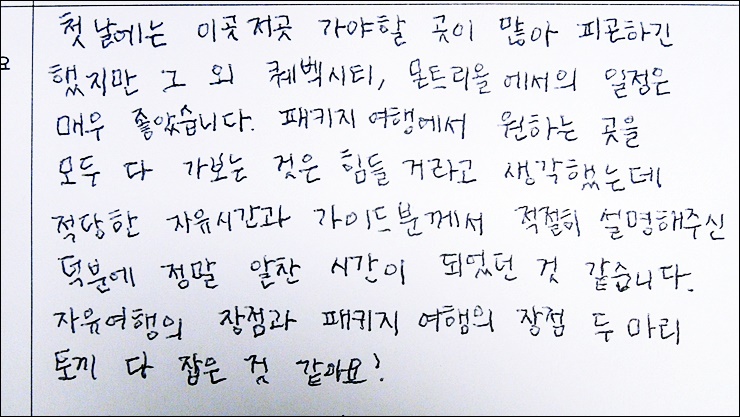 첫날에는 이곳저곳 가야할 곳이 많아 피곤하긴
요
했지만 그 외 퀘벡시티, 몬트리올에서의 일정은
매우 좋았습니다. 패키지여행에서 원하는 곳을
모두 다 가보는 것은 힘들거라고 생각했는데
적당한 자유시간과 가이드분께서 적절히 설명해주신
덕분에 정말 알찬 시간이 되었던 것 같습니다.
자유여행의 장점과 패키지 여행의 장점 두마리
토끼 다 잡은 점 같아요!